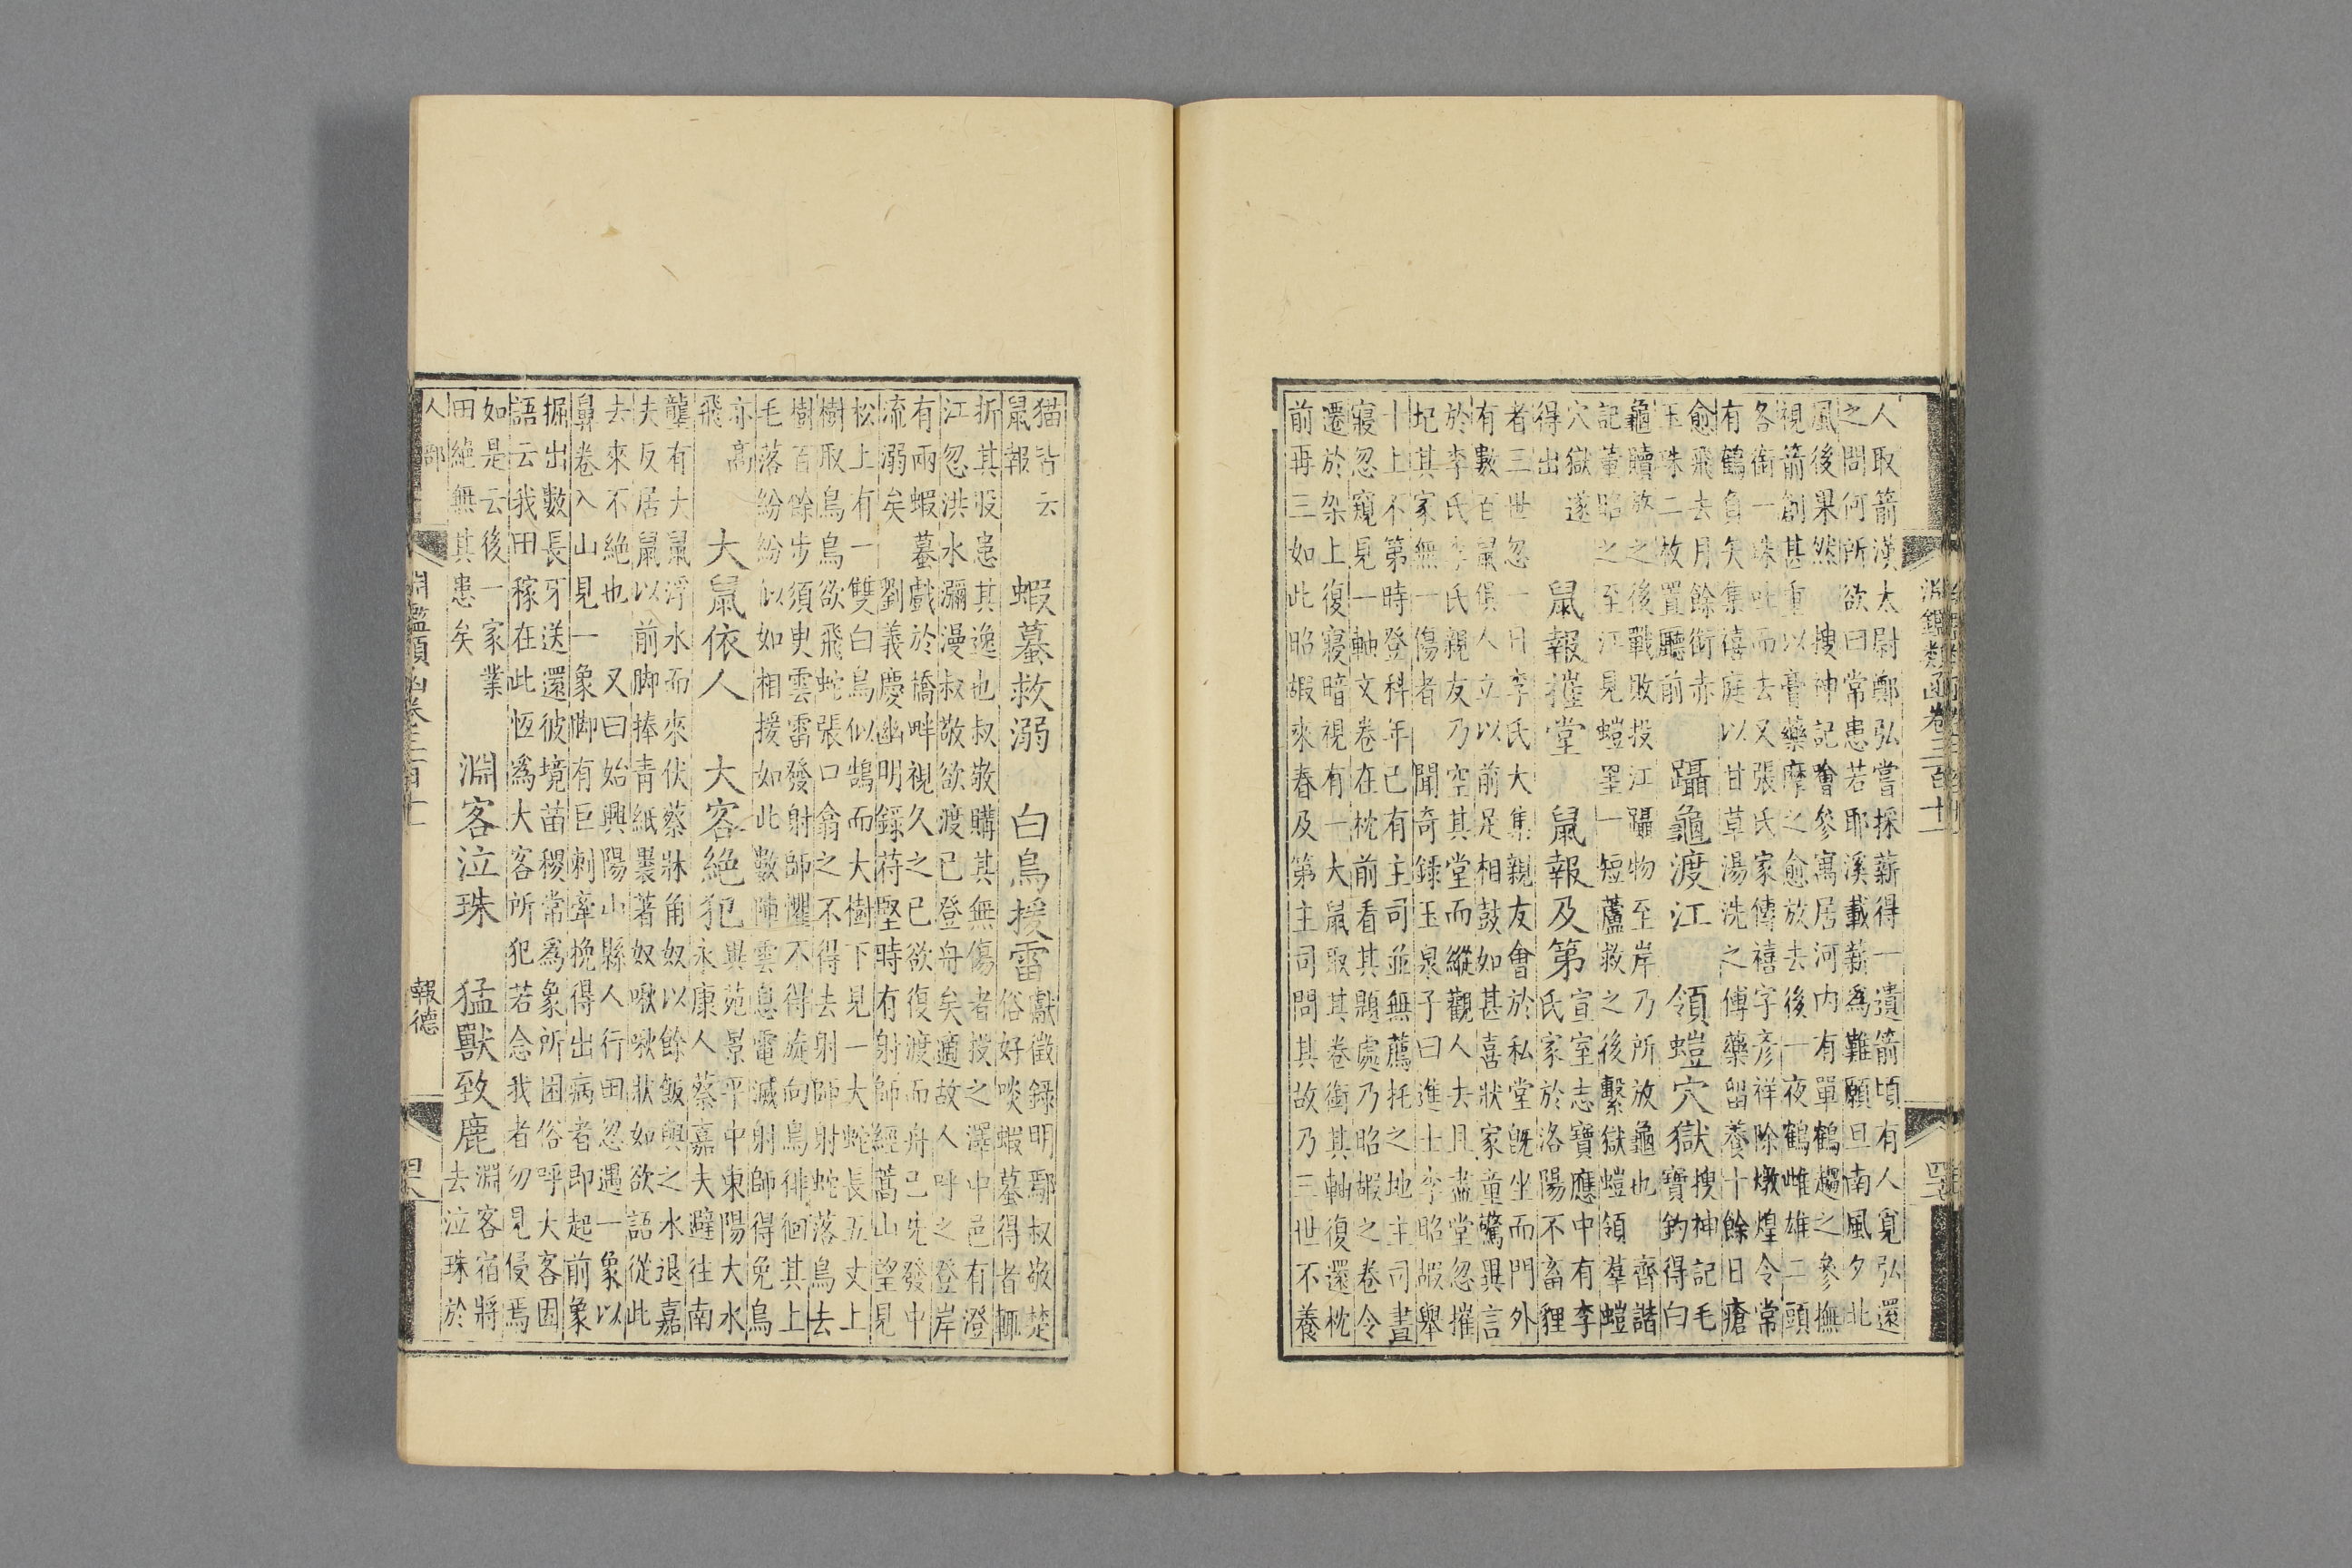 淵鑑類函卷三百十一
人取箭漢太尉鄭弘嘗採薪得一遺箭頃有人覓弘還
之問何所欲曰常患若耶溪載薪爲難願旦南風夕北
風後果然 搜神記噲參寓居河内有單鶴趨之參撫
視箭創甚重以膏藥摩之愈放去後一夜鶴雌雄二頭
各銜一珠吐而去又張氏家傳禧字彦祥除燉煌令常
有鶴負矢集禧庭以甘草湯洗之傅藥留養十餘日瘡
愈飛去月餘銜赤
玉珠二故置聽前
躡龜渡江 領螘穴獄
搜神記毛
寶釣得白
龜贖放之後戰敗投江躡物至岸乃所放龜也 齊諧
記董昭之至江見螘罣一短蘆救之後繫獄螘領羣螘
穴獄遂
得出
鼠報摧堂 鼠報及第
宣室志寶應中有李
氏家於洛陽不畜貍
者三世忽一日李氏大集親友會於私堂旣坐而門外
有數百鼠俱人立以前足相鼓如甚喜狀家童驚異言
於李氏李氏親友乃空其堂而縱觀人去且盡堂忽摧
圮其家無一傷者 聞奇錄玉泉子曰進士李昭嘏舉
十上不第時登科年已有主司並無薦托之地主司晝
寢忽窺見一軸文卷在枕前看其題處乃昭嘏之卷令
遷於架上復寢暗視有一大鼠取其卷銜其軸復還枕
前再三如此昭嘏來春及第主司問其故乃三世不養
猫皆云
鼠報
蝦蟇救溺 白鳥援雷
獻徵錄明鄢叔敬楚
俗好啖蝦蟇得者輒
折其股恚其逸也叔敬購其無傷者投之澤中邑有澄
江忽洪水瀰漫叔敬欲渡已登舟矣適故人呼之登岸
有兩蝦蟇戲於橋畔視久之已欲復渡而舟已先發中
流溺矣 劉義慶幽明錄苻堅時有射師經嵩山望見
松上有一雙白鳥似鵠而大樹下見一大蛇長五丈上
樹取鳥鳥欲飛蛇張口翕之不得去射師射蛇落鳥去
樹百餘步須臾雲雷發射師懼不得旋向鳥徘徊其上
毛落紛紛似如相援如此數陣雲息電滅射師得免鳥
亦高
飛
大鼠依人 大客絶犯
異苑景平中東陽大水
永康人蔡嘉夫避往南
壟有大鼠浮水而來伏蔡牀角奴以餘飯與之水退嘉
夫反居鼠以前脚捧青紙裹著奴奴啾啾狀如欲語從此
去來不絶也 又曰始興陽山縣人行田忽遇一象以
鼻卷入山見一象脚有巨刺牽挽得出病者即起前象
掘出數長牙送還彼境苗稷常爲象所困俗呼大客因
語云我田稼在此恆爲大客所犯若念我者勿見侵焉
如是云後一家業
田絶無其患矣
淵客泣珠 猛獸致鹿
淵客宿將
去泣珠於
人部
淵鑑類函卷三百十一
報德